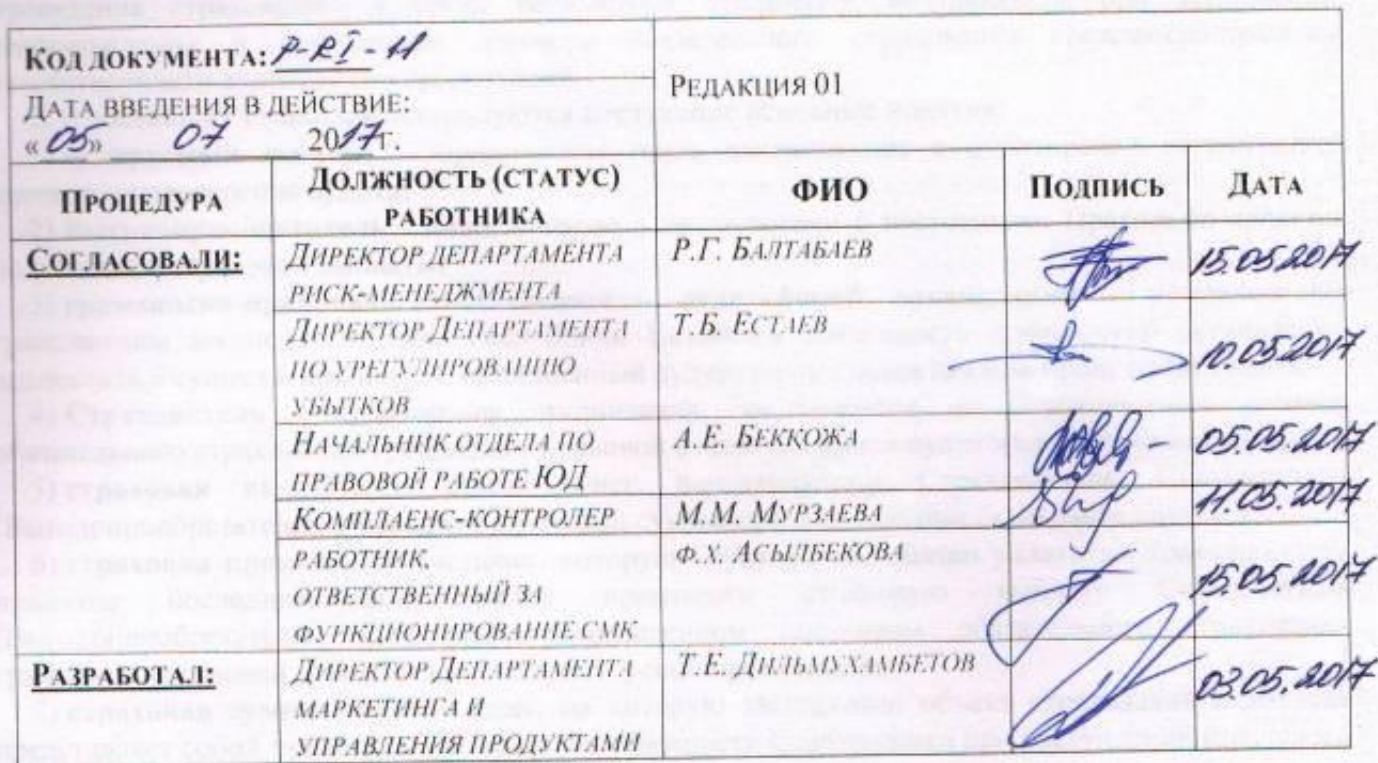 КОД ДОКУМЕНТА: P-RI-11
РЕДАКЦИЯ 01
ДАТА ВВЕДЕНИЯ В ДЕЙСТВИЕ:
« 05» 07 2017г.
ПРОЦЕДУРА
ДОЛЖНОСТЬ (СТАТУС)
РАБОТНИКА
ФИО
ПОДПИСЬ
ДАТА
СОГЛАСОВАЛИ:
ДИРЕКТОР ДЕПАРТАМЕНТА
РИСК-МЕНЕДЖМЕНТА
Р.Г. БАЛТАБАЕВ
15.05.2017
ДИРЕКТОР ДЕПАРТАМЕНТА
ПО УРЕГУЛИРОВАНИЮ
УБЫТКОВ
Т.Б. ЕСТАЕВ
10.05.2017
НАЧАЛЬНИК ОТДЕЛА ПО
ПРАВОВОЙ РАБОТЕ ЮД
А.Е. БЕККОЖА
05.05.2017
КОМПЛАЕНС-КОНТРОЛЕР
М.М. МУРЗАЕВА
11.05.2017
РАБОТНИК,
ОТВЕТСТВЕННЫЙ ЗА
ФУНКЦИОНИРОВАНИЕ СМК
Ф.Х. АСЫЛБЕКОВА
15.05.2017
РАЗРАБОТАЛ:
ДИРЕКТОР ДЕПАРТАМЕНТА
МАРКЕТИНГА И
УПРАВЛЕНИЯ ПРОДУКТАМИ
Т.Е. ДИЛЬМУХАМБЕТОВ
03.05.2017